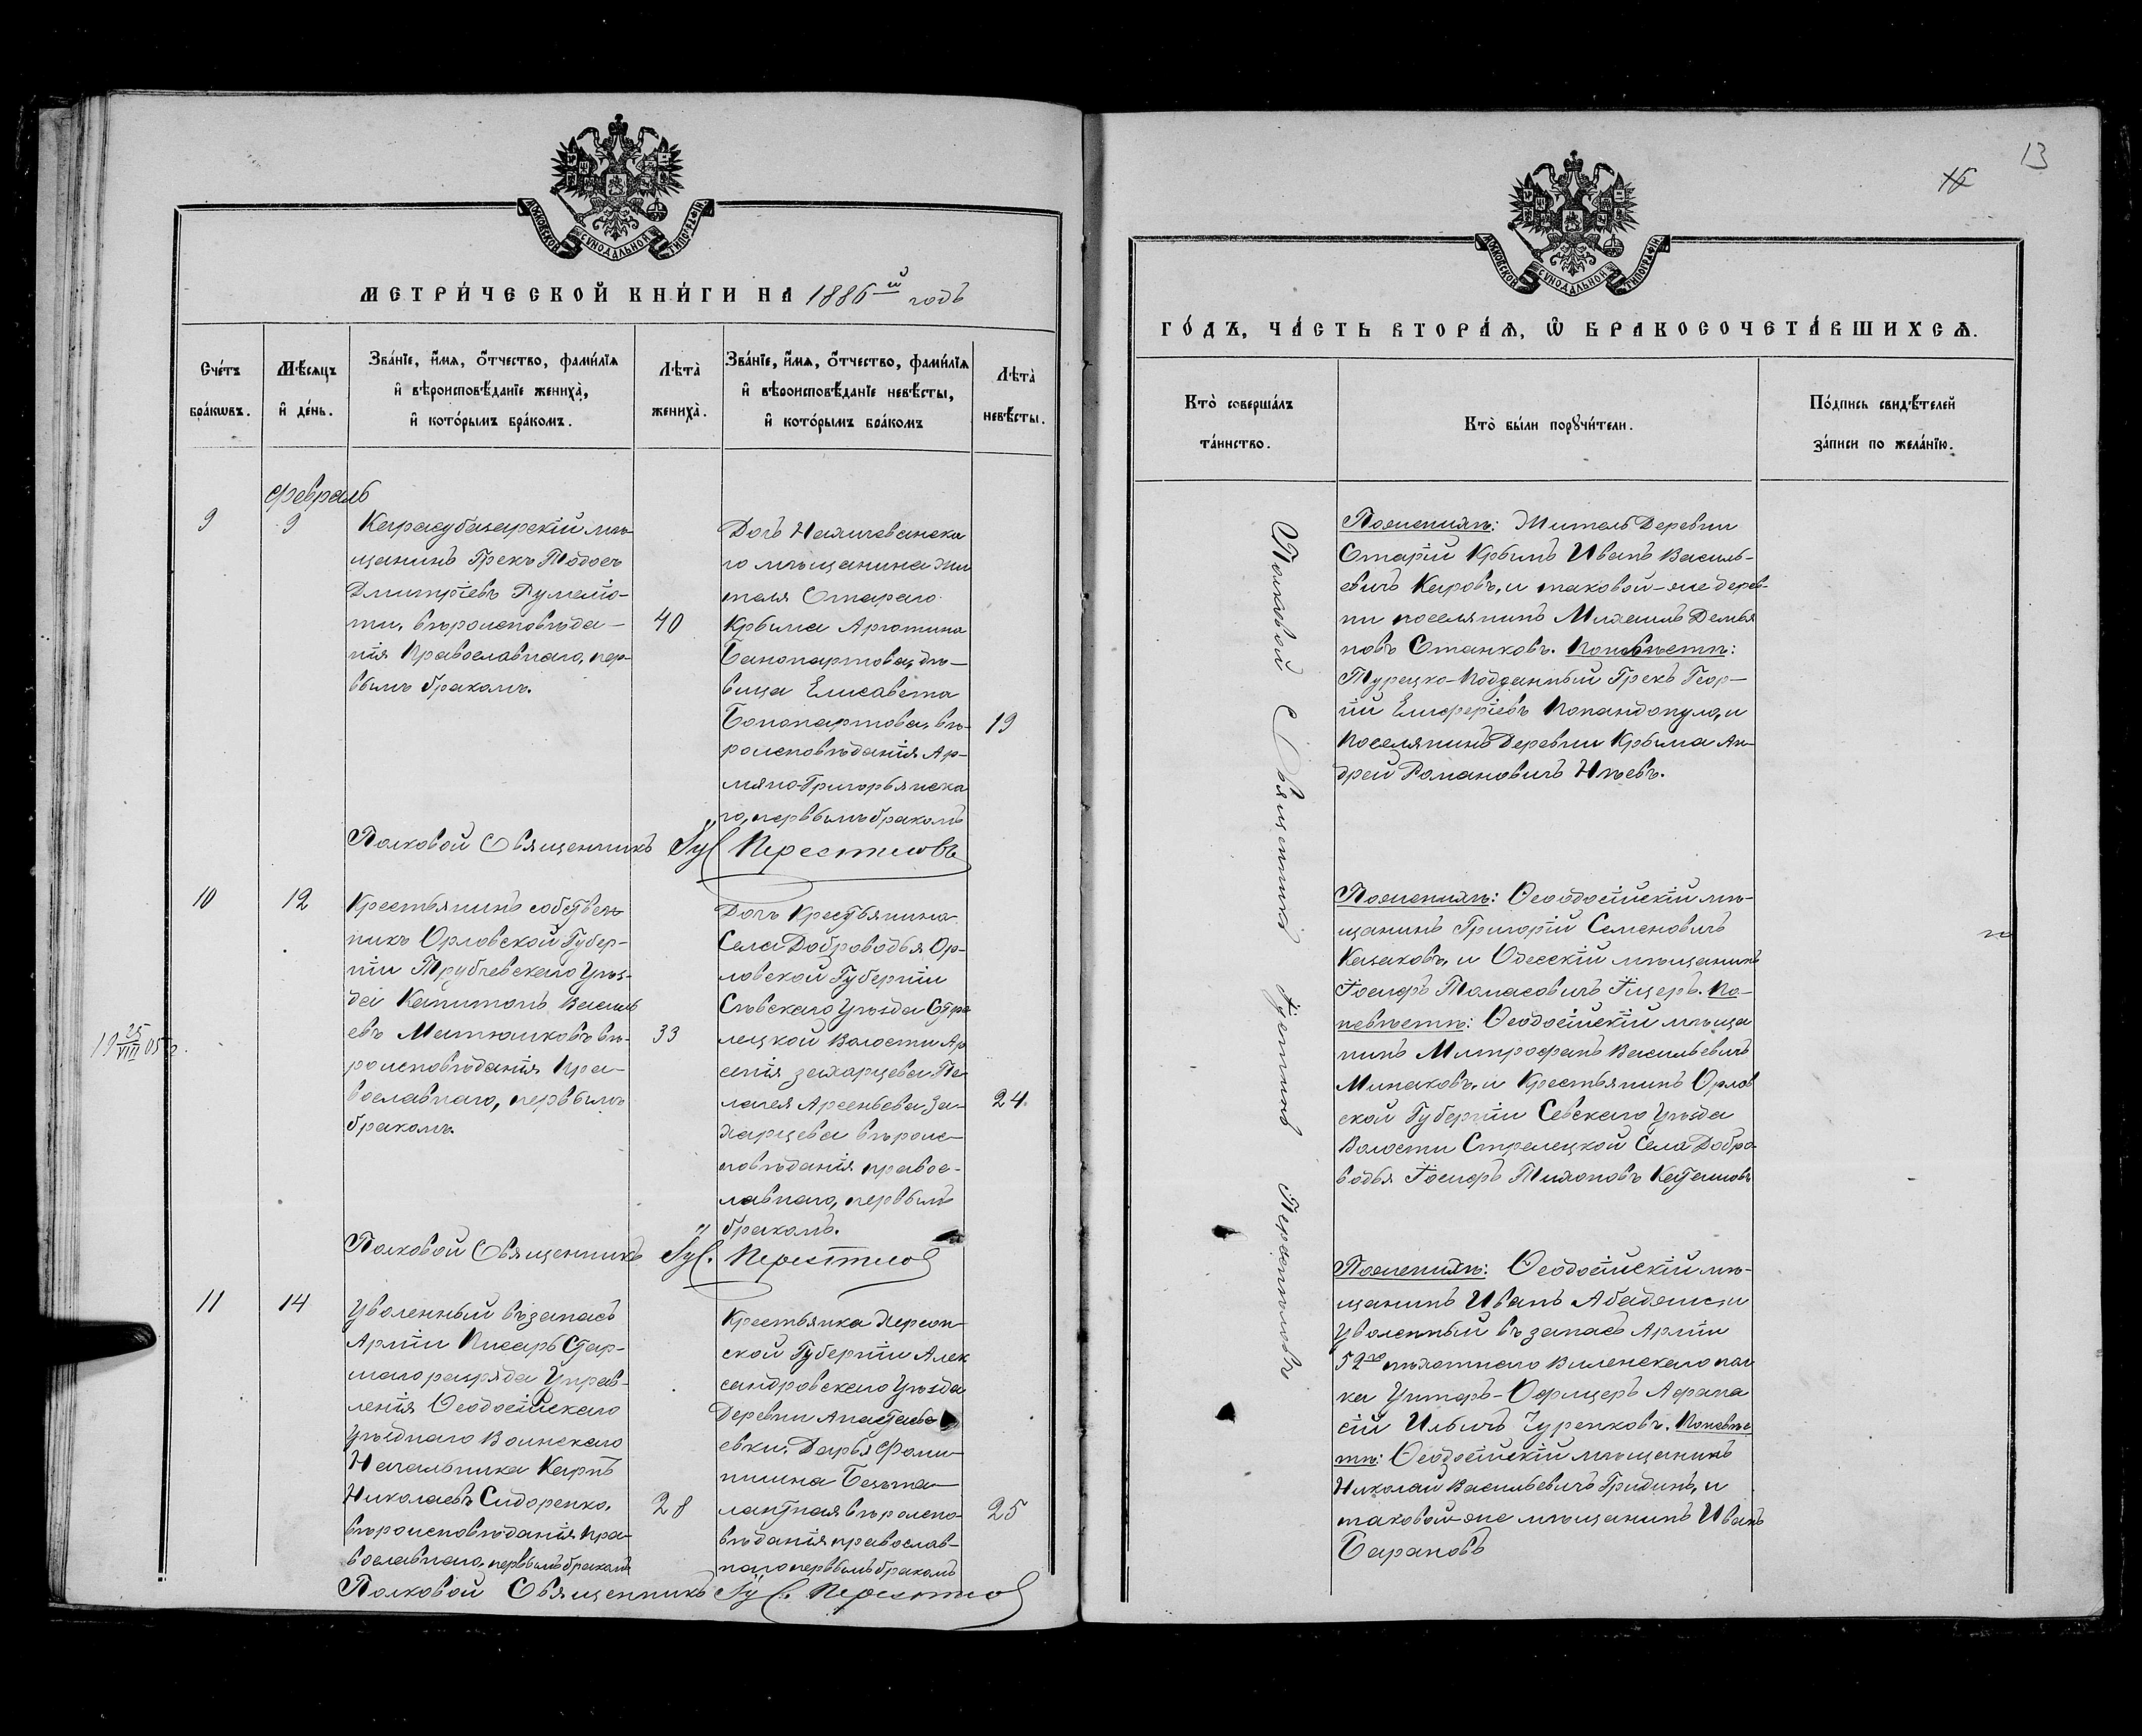 МОСКОВСКОЙ СѴНОДАЛЬНОЙ ТИПОГРАФІИ
МЕТРИ́ЧЕСКОЙ КНИ́ГИ НА 1886й годъ
Сче́тъ бра́кωвъ.
Мѣ́сяцъ и҆ де́нь.
Зва́нїе, и҆́мя, ѻ҆́тчество, фами́лїя
и҆ вѣроисповѣ́данїе жениха̀,
и҆ кото́рымъ бра́комъ.
Лѣта̀ жениха̀.
Зва́нїе, и҆́мя, ѻ҆́тчество, фами́лїя
и҆ вѣроисповѣ́данїе невѣ́сты,
и҆ кото́рымъ бра́комъ
Лѣта̀ невѣ́сты.
Февраль
9
9
Карасубазарскій мѣ-
щанинъ Грекъ Тодосъ
Дмитріевъ Румеліо-
ти, вѣроисповѣда-
нія Православнаго, пер-
вымъ бракомъ.
40
Дочь Нахичеванска
го мѣщанина жи
теля Стараго
Крыма Арютина
Банопартова, дѣ-
вица Елисавета
Бонопартова, вѣ-
роисповѣданія Ар-
мяно-Григорьянска
го, первымъ бракомъ
19
Полковой Священникъ Іус Перестиловъ
10
12
Крестьянинъ собствен
никъ Орловской Губер-
ніи Трубчевскаго Уѣз-
да Капитонъ Василь
евъ Матюшковъ вѣ-
роисповѣданія Пра-
вославнаго, первымъ
бракомъ.
33
Дочь Крестьянина
Села Доброводья Ор-
ловской Губерніи
Сѣвскаго Уѣзда Стре
лецкой Волости Ар
сенія Захарцева Пе
лагея Арсеньева За-
харцева вѣроис-
повѣданія правос-
лавнаго, первымъ
бракомъ.
24
19 25/VIII 05 г.
Полковой Священникъ Іус. Перестилов
11
14
Уволенный въ запасъ
Арміи Писарь Стар-
шаго разряда Управ-
ленія Ѳеодосійскаго
Уѣзднаго Воинскаго
Начальника Карпъ
Николаевъ Сидоренко,
вѣроисповѣданія Пра-
вославнаго, первымъ бракомъ
28
Крестьянка Херсон-
ской Губерніи Алек
сандровскаго Уѣзда
Деревни Анастасье
евки, Дарья Фоми-
нишна Безта-
лантная вѣроиспо-
вѣданія православ-
наго первымъ бракомъ
25
Полковой Священникъ Іус. Перестилов
13
16
МОСКОВСКОЙ СѴНОДАЛЬНОЙ ТИПОГРАФІИ
ГО́ДЪ, ЧА́СТЬ ВТОРА́Ѧ, Ѽ БРАКОСОЧЕТА́ВШИХСѦ.
Кто̀ соверша́лъ та́инство.
Кто̀ бы́ли порꙋчи́тели.
По́дпись свидѣ́телей за́писи по жела́нїю.
Полковой Священникъ Іустинъ Перестиловъ
По женихѣ: Житель Деревни
Старій Крымъ Иванъ Василь-
евичъ Кировъ, и таковой-же дерев-
ни поселянинъ Михаилъ Демья
новъ Станковъ. По невѣстѣ:
Турецко-Подданный Грекъ Геор-
гій Елиферіевъ Попандопуло, и
Поселянинъ Деревни Крыма Ан-
дрей Романовичъ Нѣевъ.
По женихѣ: Ѳеодосійскій мѣ-
щанинъ Григорій Семеновичъ
Казаковъ, и Одесскій мѣщанинъ
Іосифъ Томасовичъ Гицеръ. По-
невѣстѣ: Ѳеодосійскій мѣща
нинъ Митрофанъ Васильевичъ
Минаковъ, и Крестьянинъ Орлов
ской Губерніи Севскаго Уѣзда
Волости Стрелецкой Села Добро
водья Іосифъ Тихоновъ
По женихѣ: Ѳеодосійскій мѣ-
щанинъ Иванъ и
Уволенный въ запасъ Арміи
52го пѣхотнаго Виленскаго пол
ка Унтеръ-Офицеръ Афана
сій Ильичъ Чуренковъ. По невѣс
тѣ: Ѳеодосійскій мѣщанинъ
Николай Васильевичъ Гридинъ, и
таковой-же мѣщанинъ Иванъ
Барановъ